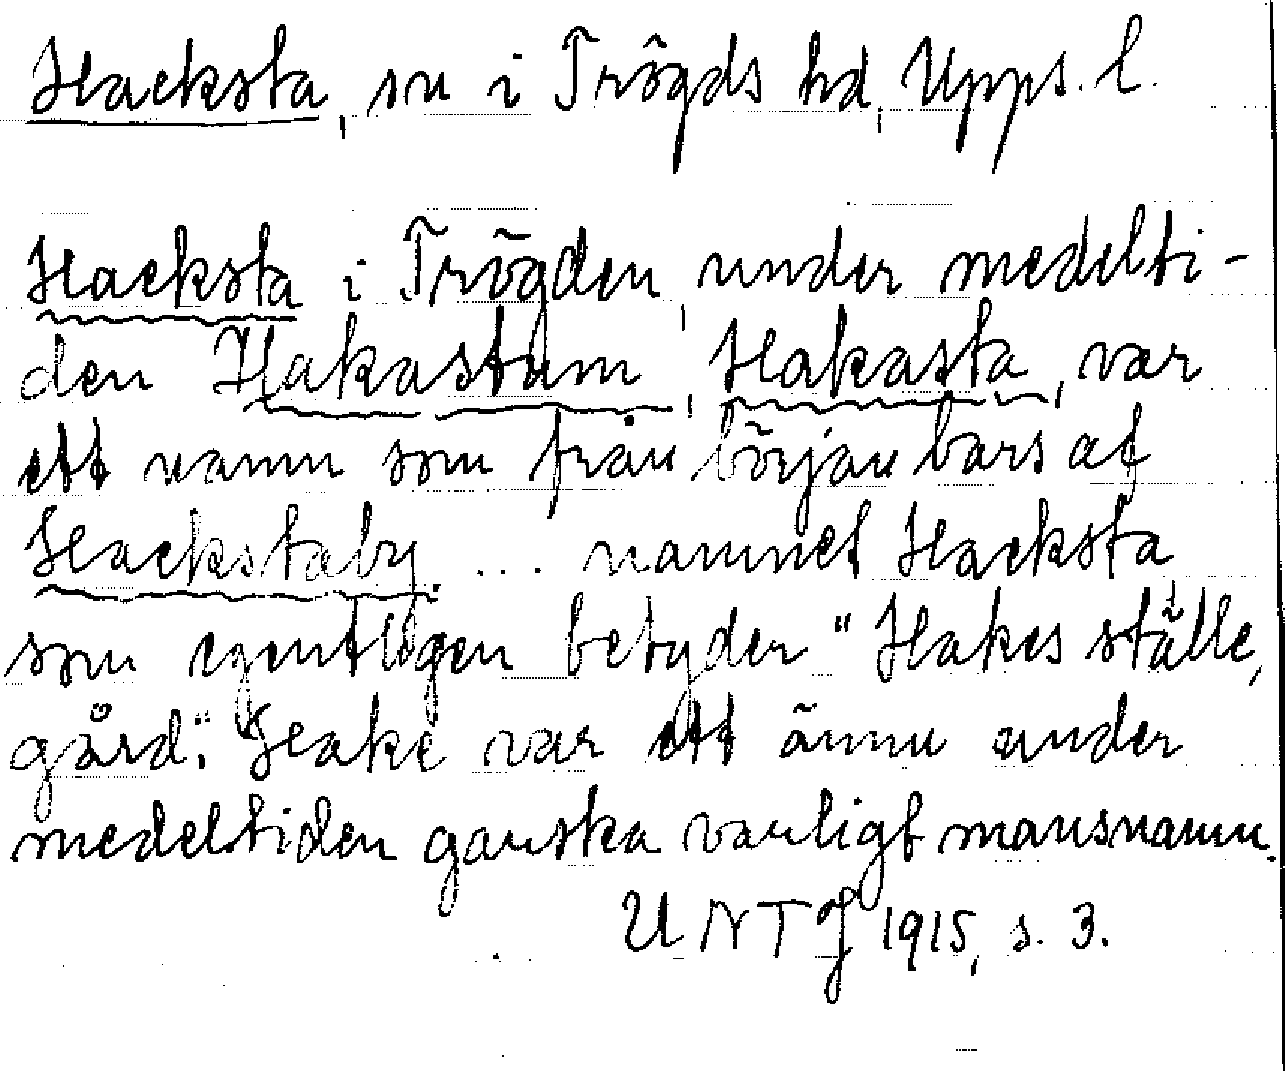 Hacksta, sn i Trögds hd, Upps. l.
Hacksta i Trögden, under medelti-
den Hakastum, Hakasta, var
ett namn som från början bars af
Hackstaby. ... namnet Hacksta
som egentligen betyder "Hakes ställe,
gård". Hake var ett ännu under
medeltiden ganska vanligt mansnamn.
UNTJ 1915, s. 3.